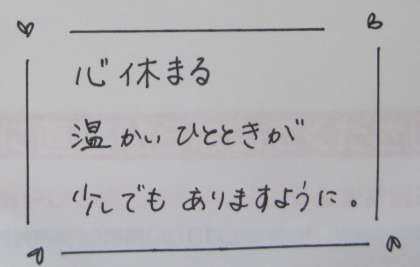 心休まる
温かいひとときが
少しでもありますように。